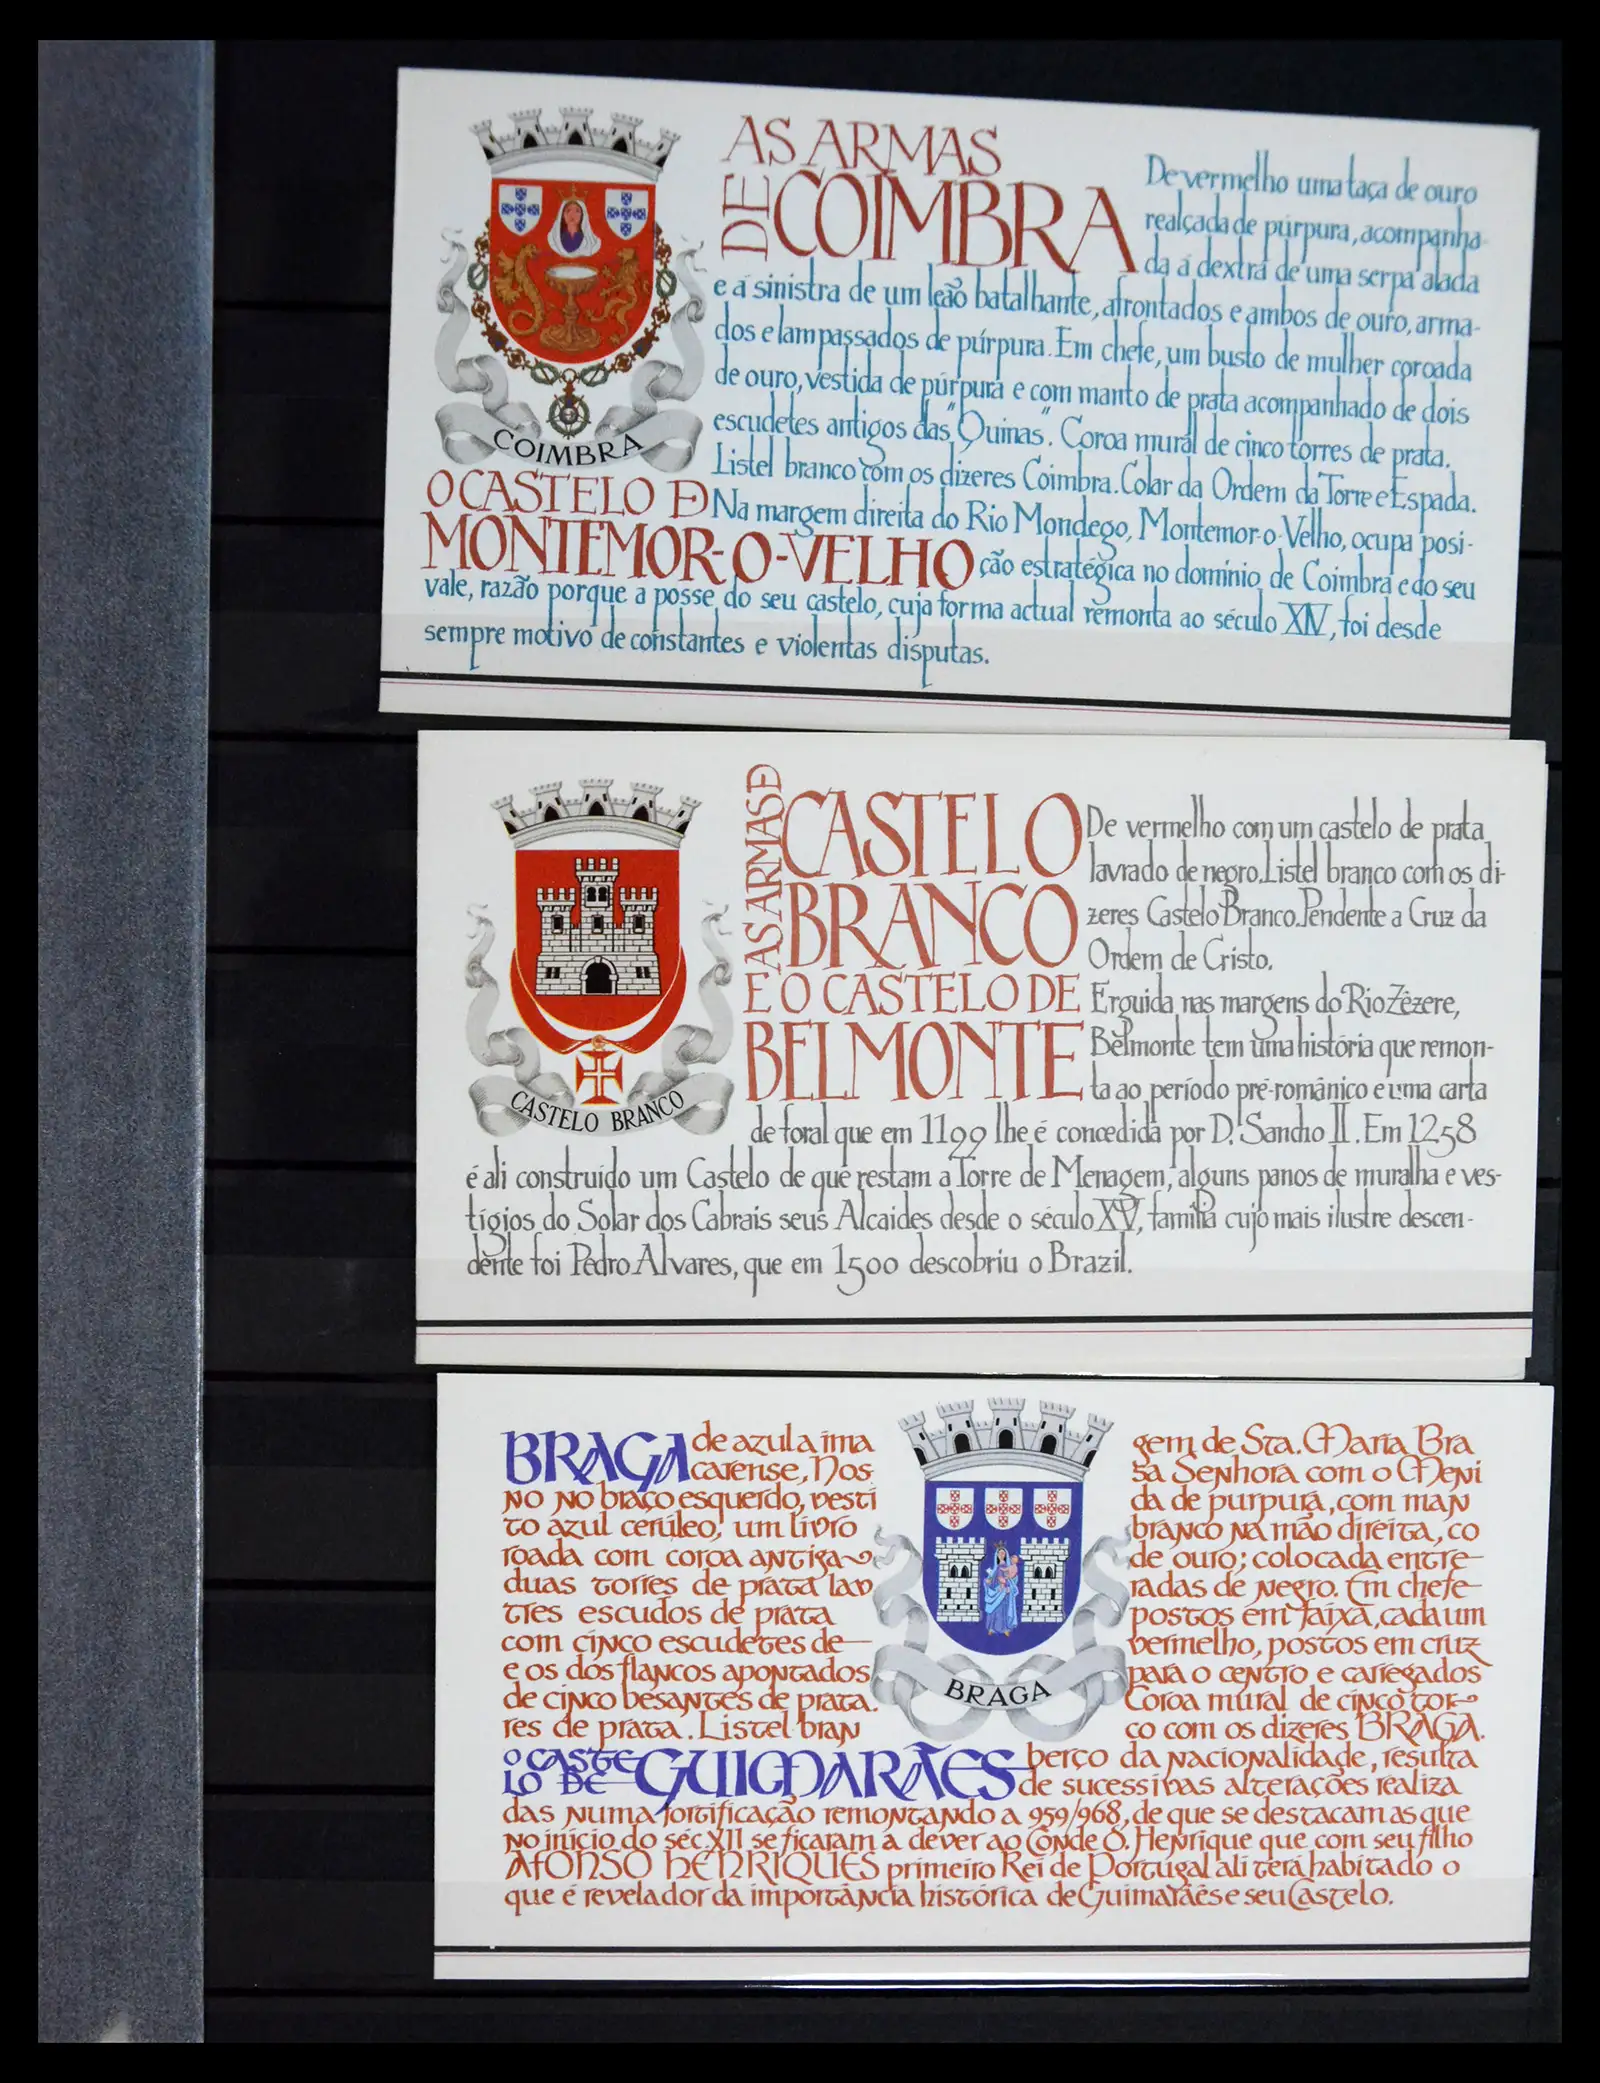 AS ARMAS
DE COIMBRA
De vermelho uma taça de ouro
realçada de púrpura, acompanha-
da á dextra de uma serpa alada
e á sinistra de um leão batalhante, afrontados e ambos de ouro, arma-
dos e lampassados de púrpura. Em chefe, um busto de mulher coroada
de ouro, vestida de púrpura e com manto de prata acompanhado de dois
escudetes antigos das "Quinas". Coroa mural de cinco torres de prata.
Listel branco com os dizeres Coimbra. Colar da Ordem da Torre e Espada.
COIMBRA
O CASTELO DE
MONTEMOR-O-VELHO
Na margem direita do Rio Mondego, Montemor-o-Velho, ocupa posi-
ção estratégica no domínio de Coimbra e do seu
vale, razão porque a posse do seu castelo, cuja forma actual remonta ao século XIV, foi desde
sempre motivo de constantes e violentas disputas.
AS ARMAS DE
CASTELO
BRANCO
E O CASTELO DE
BELMONTE
CASTELO BRANCO
De vermelho com um castelo de prata
lavrado de negro. Listel branco com os di-
zeres Castelo Branco. Pendente a Cruz da
Ordem de Cristo.
Erguida nas margens do Rio Zêzere,
Belmonte tem uma história que remon-
ta ao período pré-românico e uma carta
de foral que em 1199 lhe é concedida por D. Sancho II. Em 1258
é ali construído um Castelo de que restam a Torre de Menagem, alguns panos de muralha e ves-
tígios do Solar dos Cabrais seus Alcaides desde o século XV, família cujo mais ilustre descen-
dente foi Pedro Alvares, que em 1500 descobriu o Brazil.
BRAGA de azul a ima gem de Sta. Maria Bra
carense, Nos sa Senhora com o Meni
no no braço esquerdo, vesti da de purpura, com man
to azul cerúleo, um livro branco na mão direita, co
roada com coroa antiga de ouro; colocada entre
duas torres de prata lav radas de negro. Em chefe
tres escudos de prata postos em faixa, cada um
com cinco escudetes de vermelho, postos em cruz
e os dos flancos apontados para o centro e carregados
de cinco besantes de prata. Coroa mural de cinco tor
res de prata. Listel bran co com os dizeres BRAGA.
BRAGA
O CASTELO DE GUIMARÃES berço da nacionalidade, resulta
de sucessivas alterações realiza
das numa fortificação remontando a 959/968, de que se destacam as que
no início do séc. XII se ficaram a dever ao Conde D. Henrique que com seu filho
AFONSO HENRIQUES primeiro Rei de Portugal ali terá habitado o
que é revelador da importância histórica de Guimarães e seu Castelo.